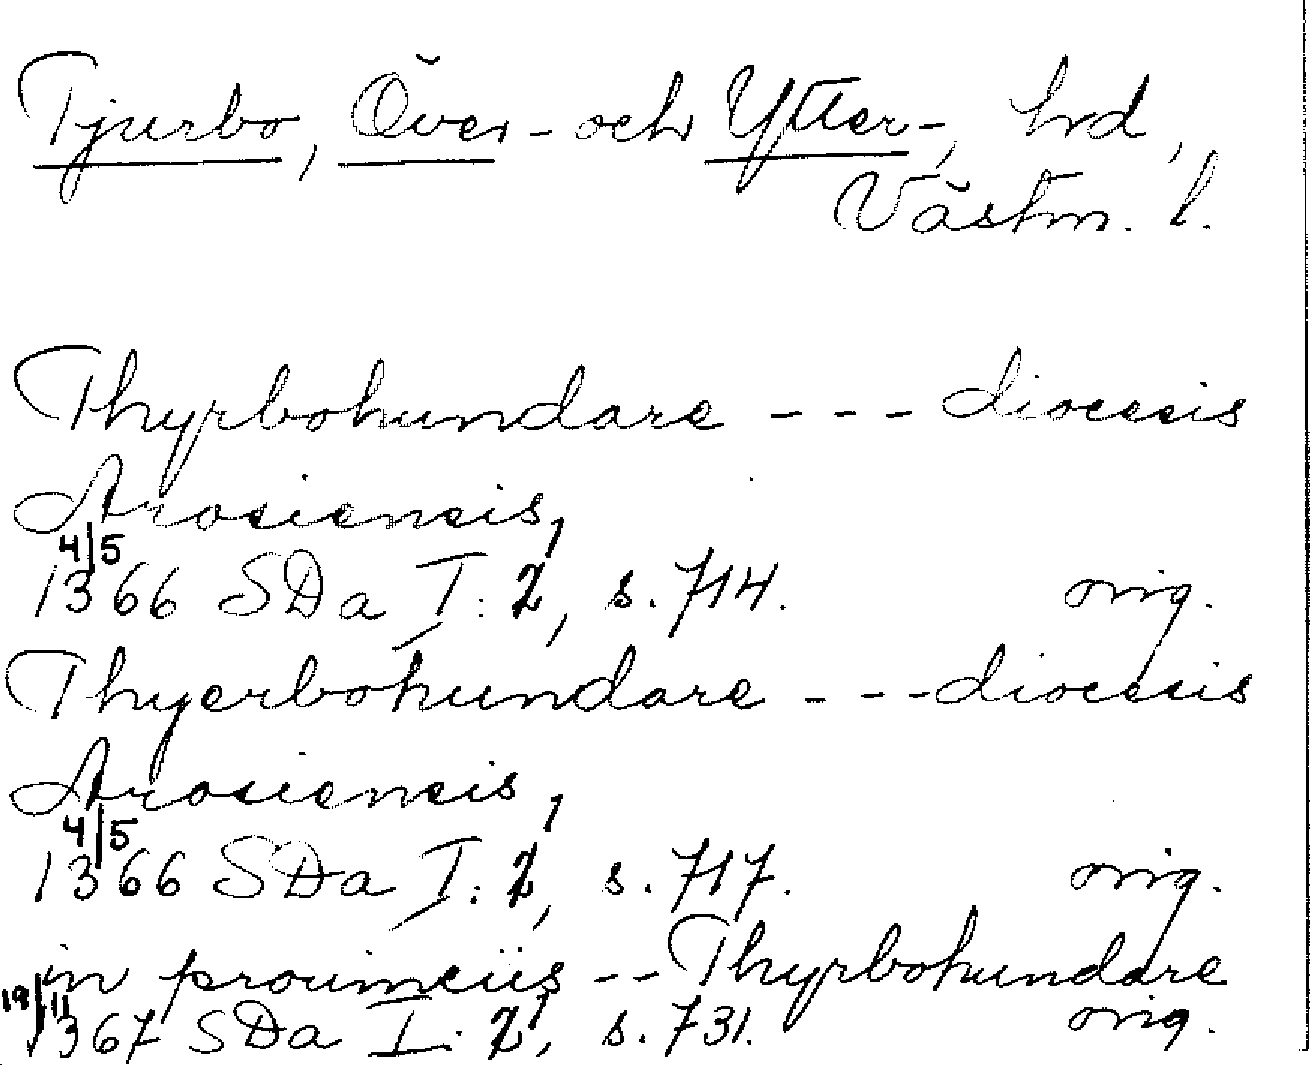 Tjurbo, Över- och Ytter-, hrd,
Västm. l.
Thyrbohundare --- diocesis
Arosiensis,
4/5
1366 SDa I: 2, s. 714. orig.
Thyerbohundare --- diocesis
Arosiensis,
4/5
1366 SDa I: 2, s. 717. orig.
in prouinciis -- Thyrbohundare
19/11
1367 SDa I: 2, s. 731. orig.